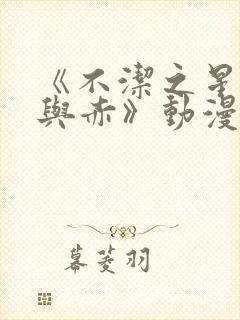 《不潔之星
與赤》動漫
幕菱羽